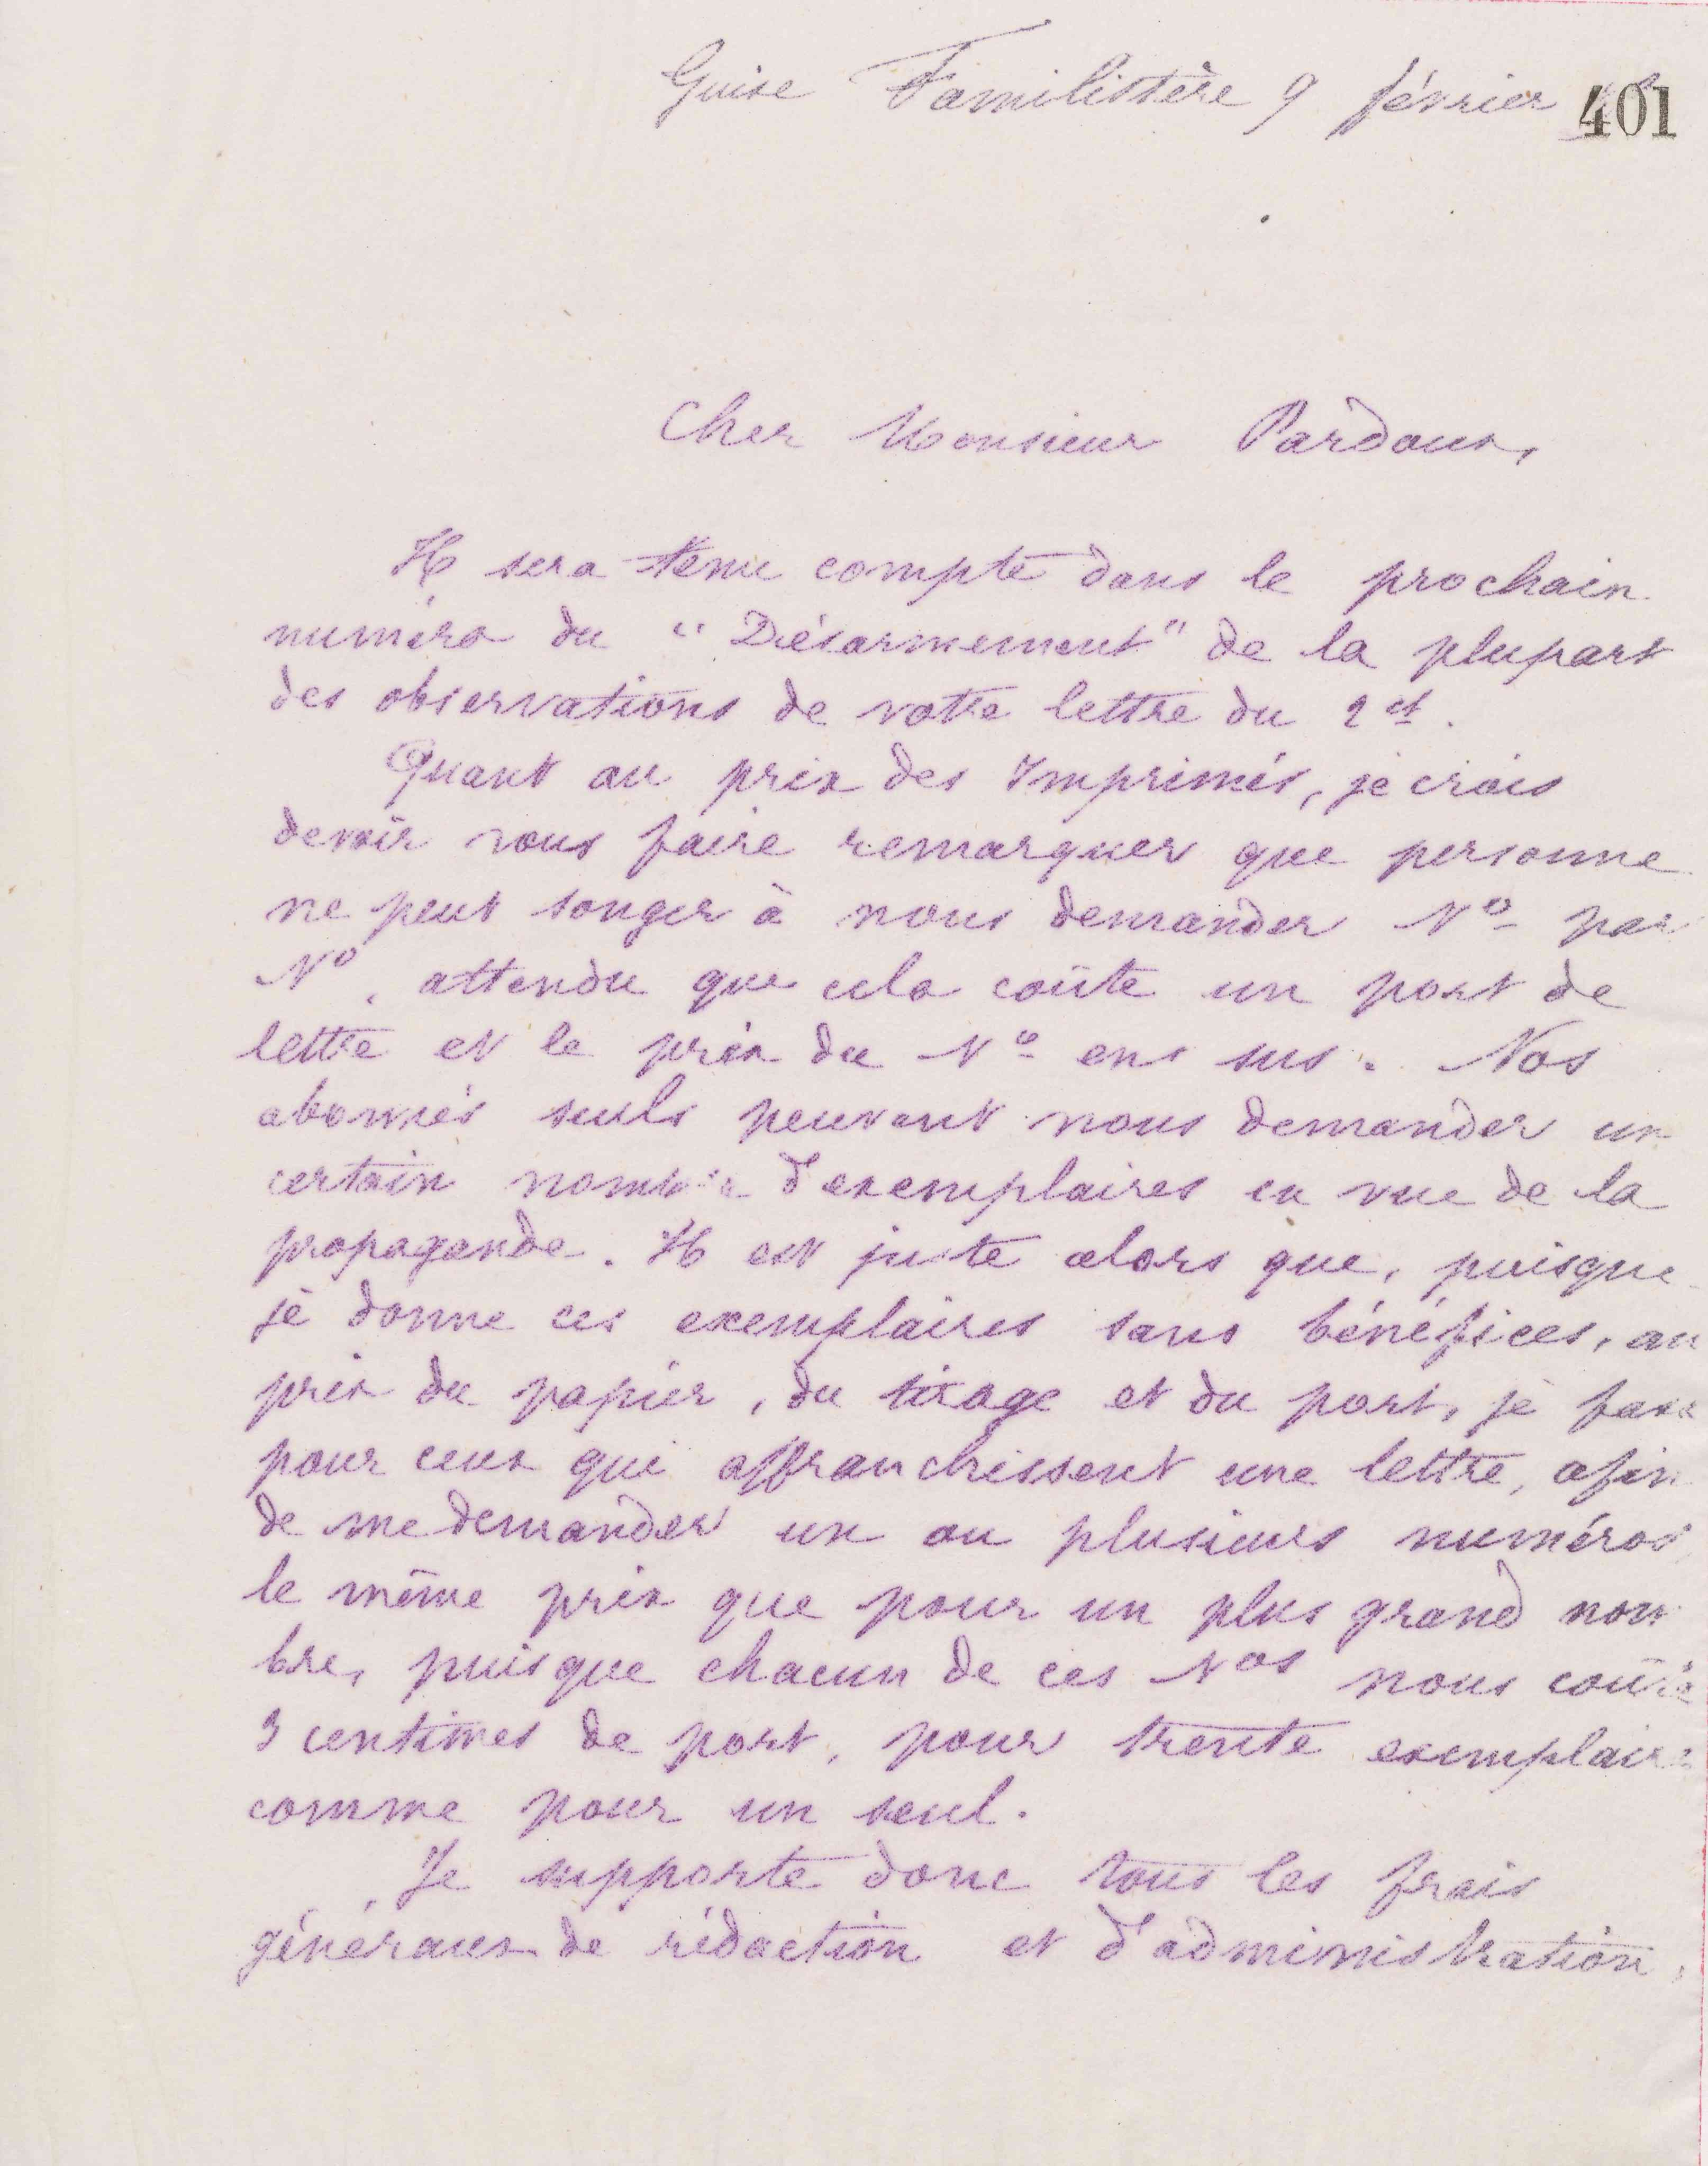 Guise Familistère 9 février
401
Cher Monsieur Pardoux,
Il sera tenu compte dans le prochain
numéro du "Désarmement" de la plupart
des observations de votre lettre du 2 ct.
Quant au prix des Imprimés, je crois
devoir vous faire remarquer que personne
ne peut songer à nous demander No par
No, attendu que cela coûte un port de
lettre et le prix du No en sus. Nos
abonnés seuls peuvent nous demander un
certain nombre d'exemplaires en vue de la
propagande. Il est juste alors que, puisque
je donne ces exemplaires sans bénéfices, au
prix du papier, du tirage et du port, je fasse
pour ceux qui affranchissent une lettre, afin
de me demander un ou plusieurs numéros
le même prix que pour un plus grand nom
bre, puisque chacun de ces Nos nous coûte
3 centimes de port, pour trente exemplaires
comme pour un seul.
Je supporte donc tous les frais
généraux de rédaction et d'administration,